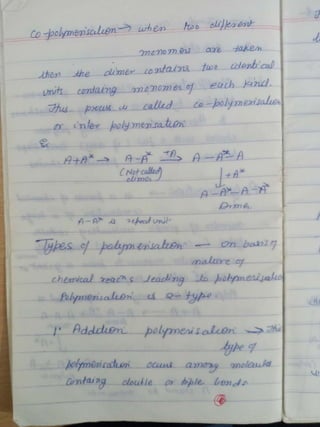 Co-polymerisation → when two different
monomers are taken
then the dimer contains two identical
units containg monomer of each kind.
This process is called co-polymerisation
or inter polymerisation
A+A* → A-A* +A→ A-A*-A
(Not called dimer) ↓ +A*
A-A*-A-A*
Dimer
A-A* is repeat unit
Types of polymerisation — on basis of
nature of
chemical reacn s leading to polymerisation
Polymerisation is 2-type
1. Addition polymerisation → This
type of
polymerisation occurs among molecules
Containg double or triple bonds
6